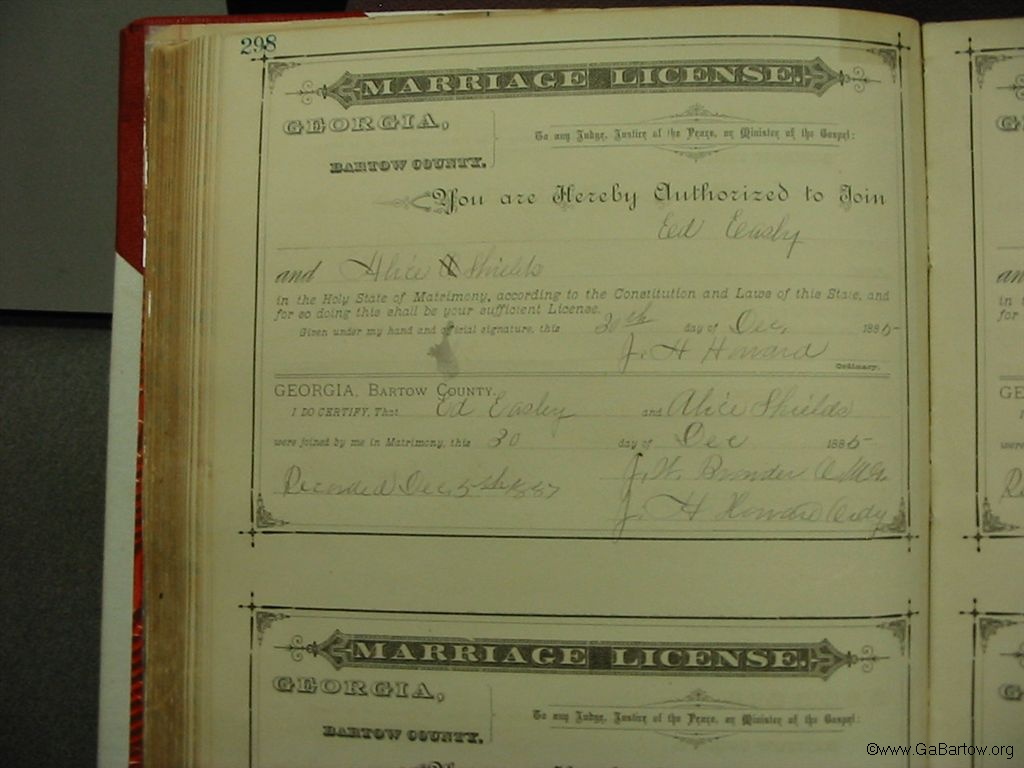 298
MARRIAGE LICENSE.
GEORGIA,
BARTOW COUNTY.
To any Judge, Justice of the Peace, or Minister of the Gospel:
You are Hereby Authorized to Join
Ed Easley
and Alice Shields
in the Holy State of Matrimony, according to the Constitution and Laws of this State, and
for so doing this shall be your sufficient License.
Given under my hand and official signature, this 30th day of Dec, 1885
J. H Howard
Ordinary.
GEORGIA, BARTOW COUNTY.
I DO CERTIFY, That Ed Easley and Alice Shields
were joined by me in Matrimony, this 30 day of Dec 1885
Recorded Dec 5th 1887 J. W.
J. H Howard Ordy
MARRIAGE LICENSE.
GEORGIA,
BARTOW COUNTY.
To any Judge, Justice of the Peace, or Minister of the Gospel:
©www.GaBartow.org